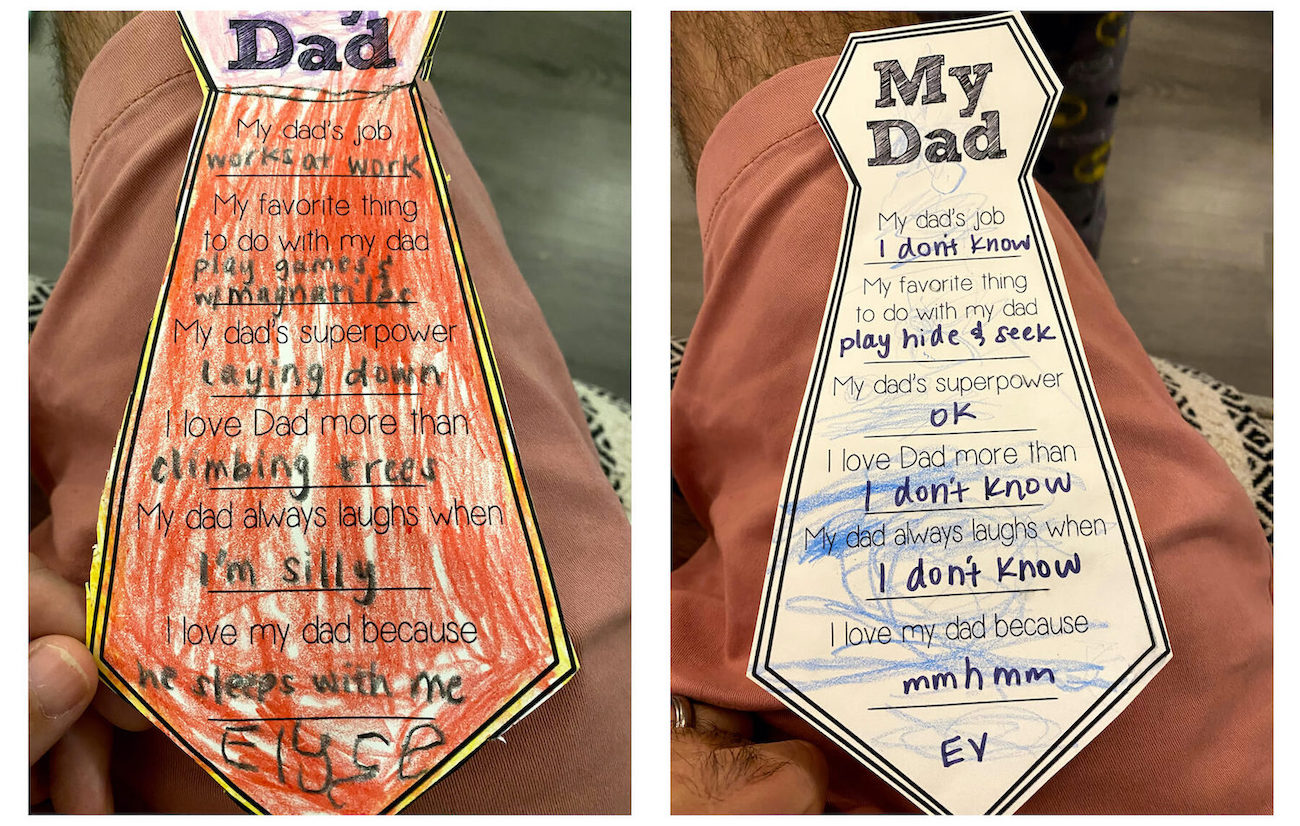 My
Dad
My dad's job
works at work
My favorite thing
to do with my dad
play games &
w/magnatiles
My dad's superpower
laying down
I love Dad more than
climbing trees
My dad always laughs when
I'm silly
I love my dad because
he sleeps with me
Elyse
My
Dad
My dad's job
I don't know
My favorite thing
to do with my dad
play hide & seek
My dad's superpower
ok
I love Dad more than
I don't know
My dad always laughs when
I don't know
I love my dad because
mmhmm
EV